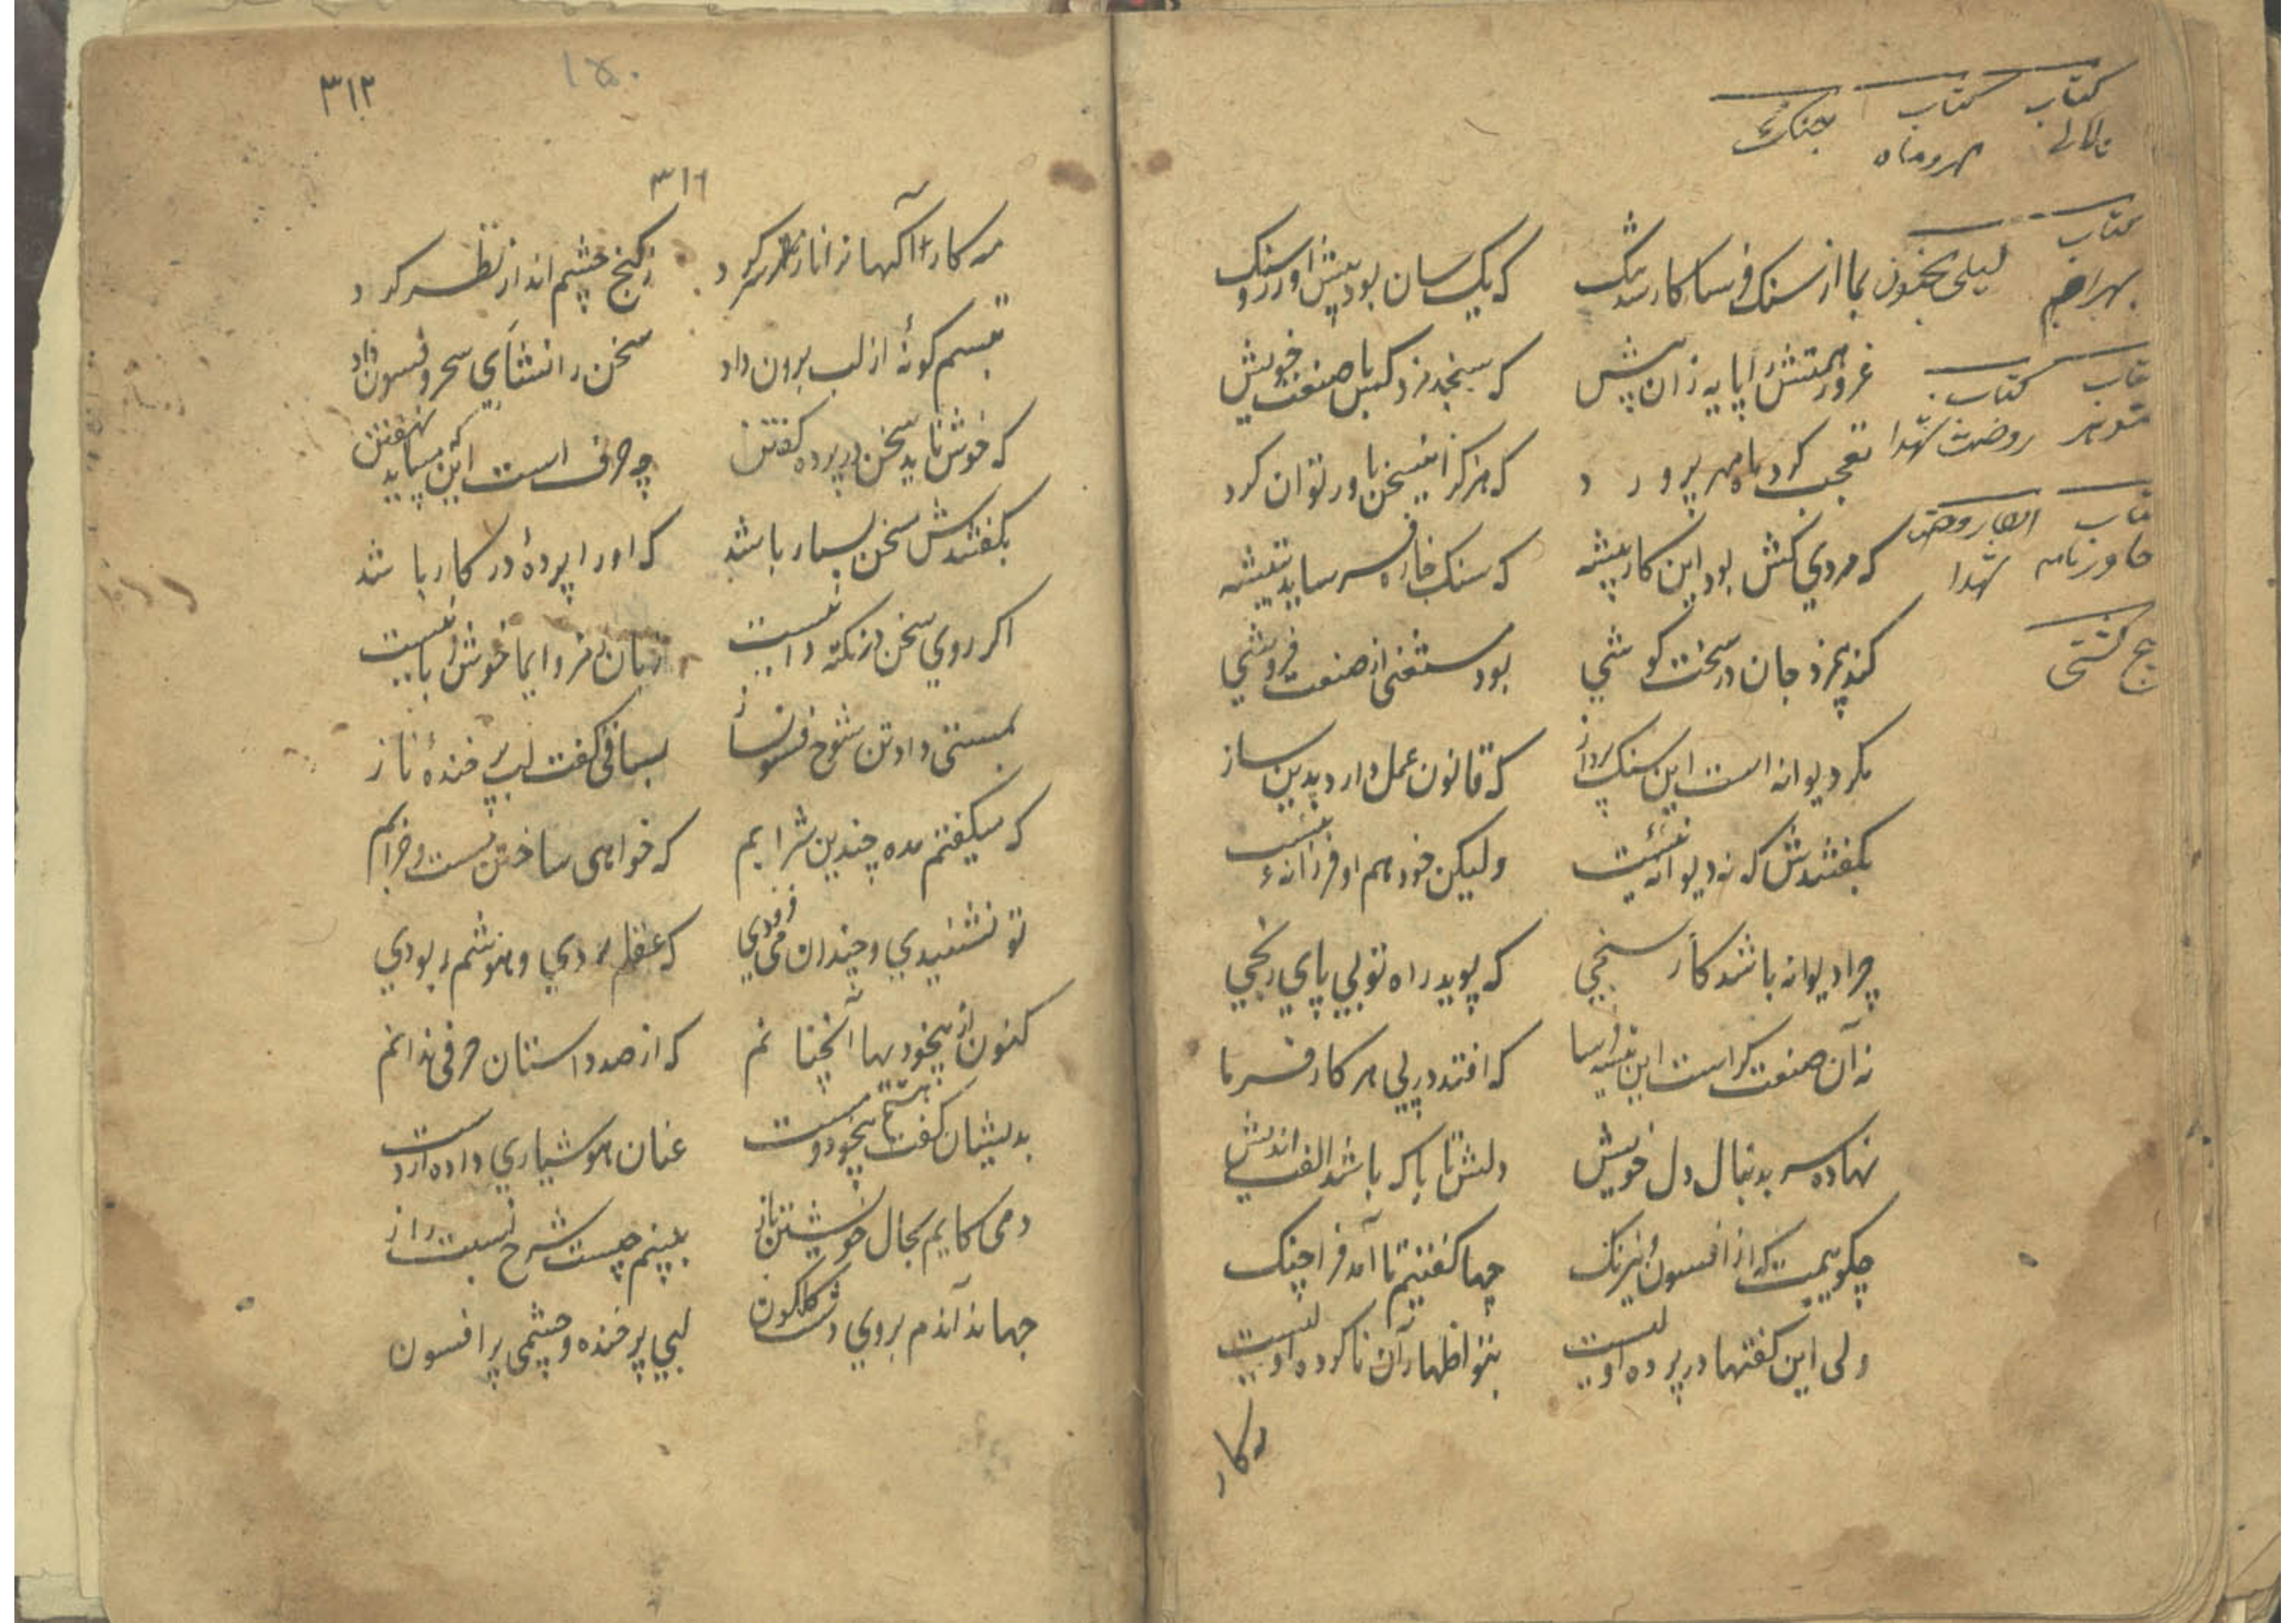 کتاب کتاب جنگ
مهر و ماه
کتاب
بهرام لیلی مجنون
کتاب کتاب
روضت شهدا
خاورنامه شهدا
بما از سنک فرسا کار شد تنک که یک سان بود پیش او زر و سنک
غرور همتش را پایه زان بیش که سنجد مزد کس با صنعت خویش
تعجب کرد ماه مهر پرورد که هرگز این سخن باور توان کرد
که مردی کش بود این کار پیشه که سنک خاره فرساید بتیشه
کند بی مزد جان در سخت کوشی بود مستغنی از صنعت فروشی
مگر دیوانه است این سنک پرداز که قانون عمل دارد بدین ساز
بگفتندش که نه دیوانه نیست ولیکن خود هم او فرزانه نیست
چرا دیوانه باشد کار سنجی که پوید راه تو بی پای رنجی
نه آن صنعت گر است این تیشه فرسا که افتد در پی هر کار فرما
نهاده سر بدنبال دل خویش دلش تا با که باشد الفت اندیش
چگویمت که از افسون و نیرنک چها گفتیم تا آمد فرا چنک
ولی این گفتها در پرده اولیست بتو اظهار آن ناکرده اولیست
۳۱۲
۱۵۰
۳۱۶
نظر کرد ز کنج چشم انداز نظر کرد
تبسم گونهٔ از لب برون داد سخن را نشئای سحر و فسون داد
که خوش ناید سخن در پرده گفتن چه حرف است این که میباید نهفتن
بگفتندش سخن بسیار باشد که او را پردهٔ در کار باشد
اگر روی سخن در نکته دان نیست زبان رمز و ایما خوش زبانیست
بمستی داد تن شوخ فسون ساز بساقی گفت لب پر خندهٔ ناز
که میگفتم مده چندین شرابم که خواهی ساختن مست و خرابم
تو نشنیدی و چندان می فزودی که عقلم بردی و هوشم ربودی
کنون از بیخودیها آنچنانم که از صد داستان حرفی ندانم
بدیشان گفت هستم بیخود و مست عنان هوشیاری داده از دست
دمی کایم بحال خویشتن باز ببینم چیست شرح نسبت راز
جهاند آندم بروی دشت گلگون لبی پر خنده و چشمی پر افسون